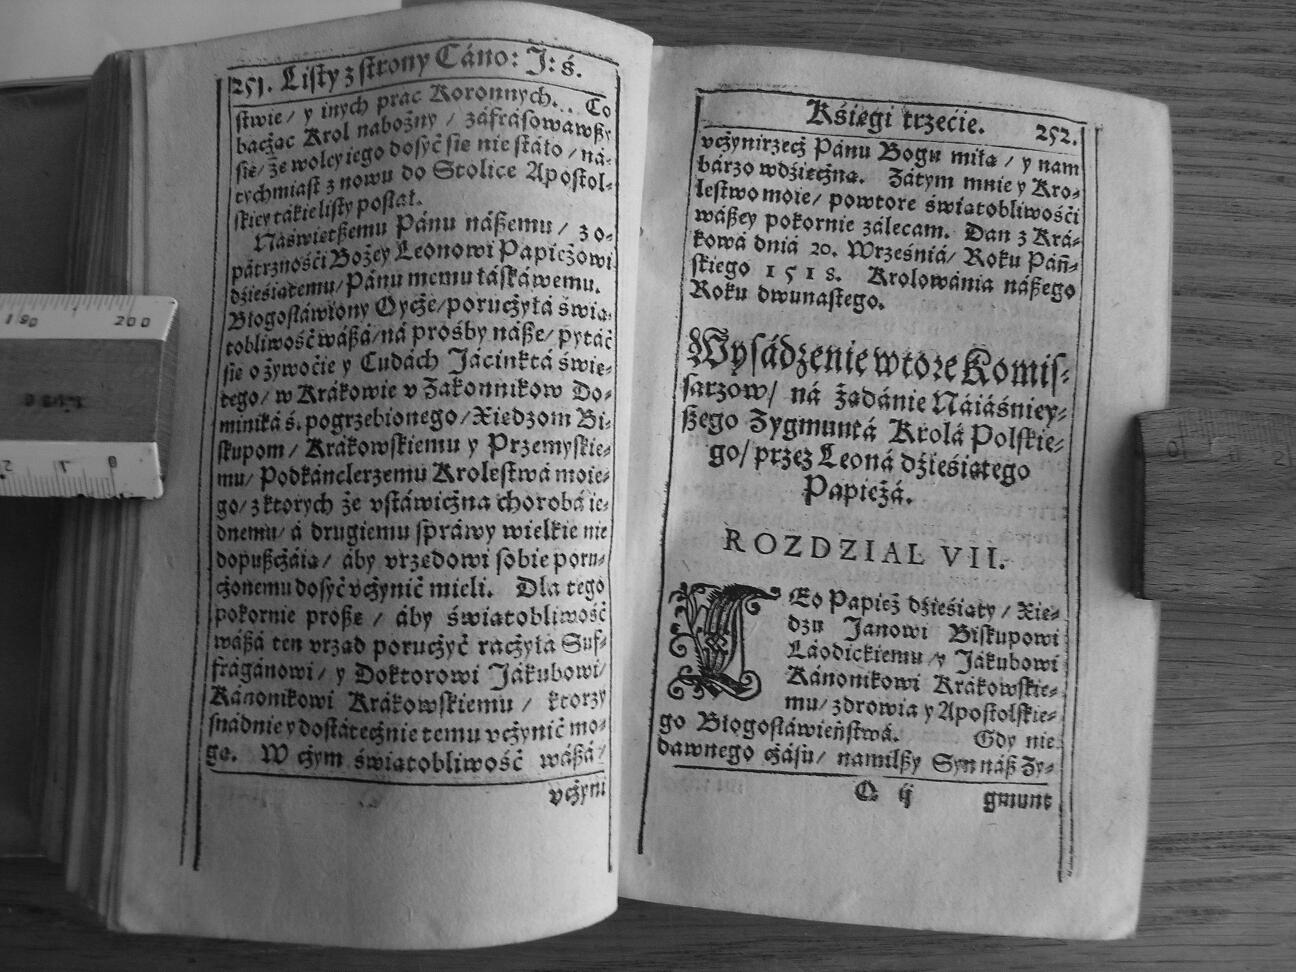 251. Listy z strony Cáno: J: ś.
stwie/ y inych prac Koronnych. Co
bacżąc Krol nabożny / záfrásowawßy
się/ że woley iego dosyć się nie stáło / ná-
tychmiast z nowu do Stolice Apostol-
skiey tákie listy posłał.
Náświętßemu Pánu náßemu / z o-
pátrznośći Bożey Leonowi Papieżowi
dżieśiątemu/ Pánu memu łáskáwemu.
Błogosłáwiony Oycże/ porucżyłá świą-
tobliwość wáßá/ ná prośby náße/ pytáć
się o żywoćie y Cudách Jácinktá świę-
tego/ w Krákowie v Zakonnikow Do-
miniká ś. pogrzebionego/ Xiędzom Bi-
skupom/ Krákowskiemu y Przemyskie-
mu/ Podkánclerzemu Krolestwá moie-
go/ z ktorych że vstáwicżna chorobá ie-
dnemu/ á drugiemu spráwy wielkie nie
dopußcżáią/ áby vrzędowi sobie poru-
cżonemu dosyć vcżynić mieli. Dla tego
pokornie proßę / áby świątobliwość
wáßá ten vrząd porucżyć racżyłá Suf-
frágánowi/ y Doktorowi Jákubowi/
Kánonikowi Krákowskiemu / ktorzy
snádnie y dostátecżnie temu vcżynić mo-
gą. W cżym świątobliwość wáßá/
vcżym
Kśięgi trzećie. 252.
vcżynirzecż Pánu Bogu miłą / y nam
bárzo wdżięcżną. Zátym mnie y Kro-
lestwo moie/ powtore świątobliwośći
wáßey pokornie zálecam. Dan z Krá-
kowá dniá 20. Wrześniá/ Roku Páń-
skiego 1518. Krolowánia náßego
Roku dwunastego.
Wysádzenie wtore Komis-
sarzow/ ná żądánie Náiáśniey-
ßego Zygmuntá Krolá Polskie-
go/ przez Leoná dżieśiątego
Papieżá.
ROZDZIAL VII.
LEo Papież dżieśiąty / Xię-
dzu Janowi Biskupowi
Láodickiemu / y Jákubowi
Kánonikowi Krákowskie-
mu/ zdrowia y Apostolskie-
go Błogosłáwieństwá. Gdy nie
dawnego cżásu/ namilßy Syn náß Zy-
Q ij gmunt